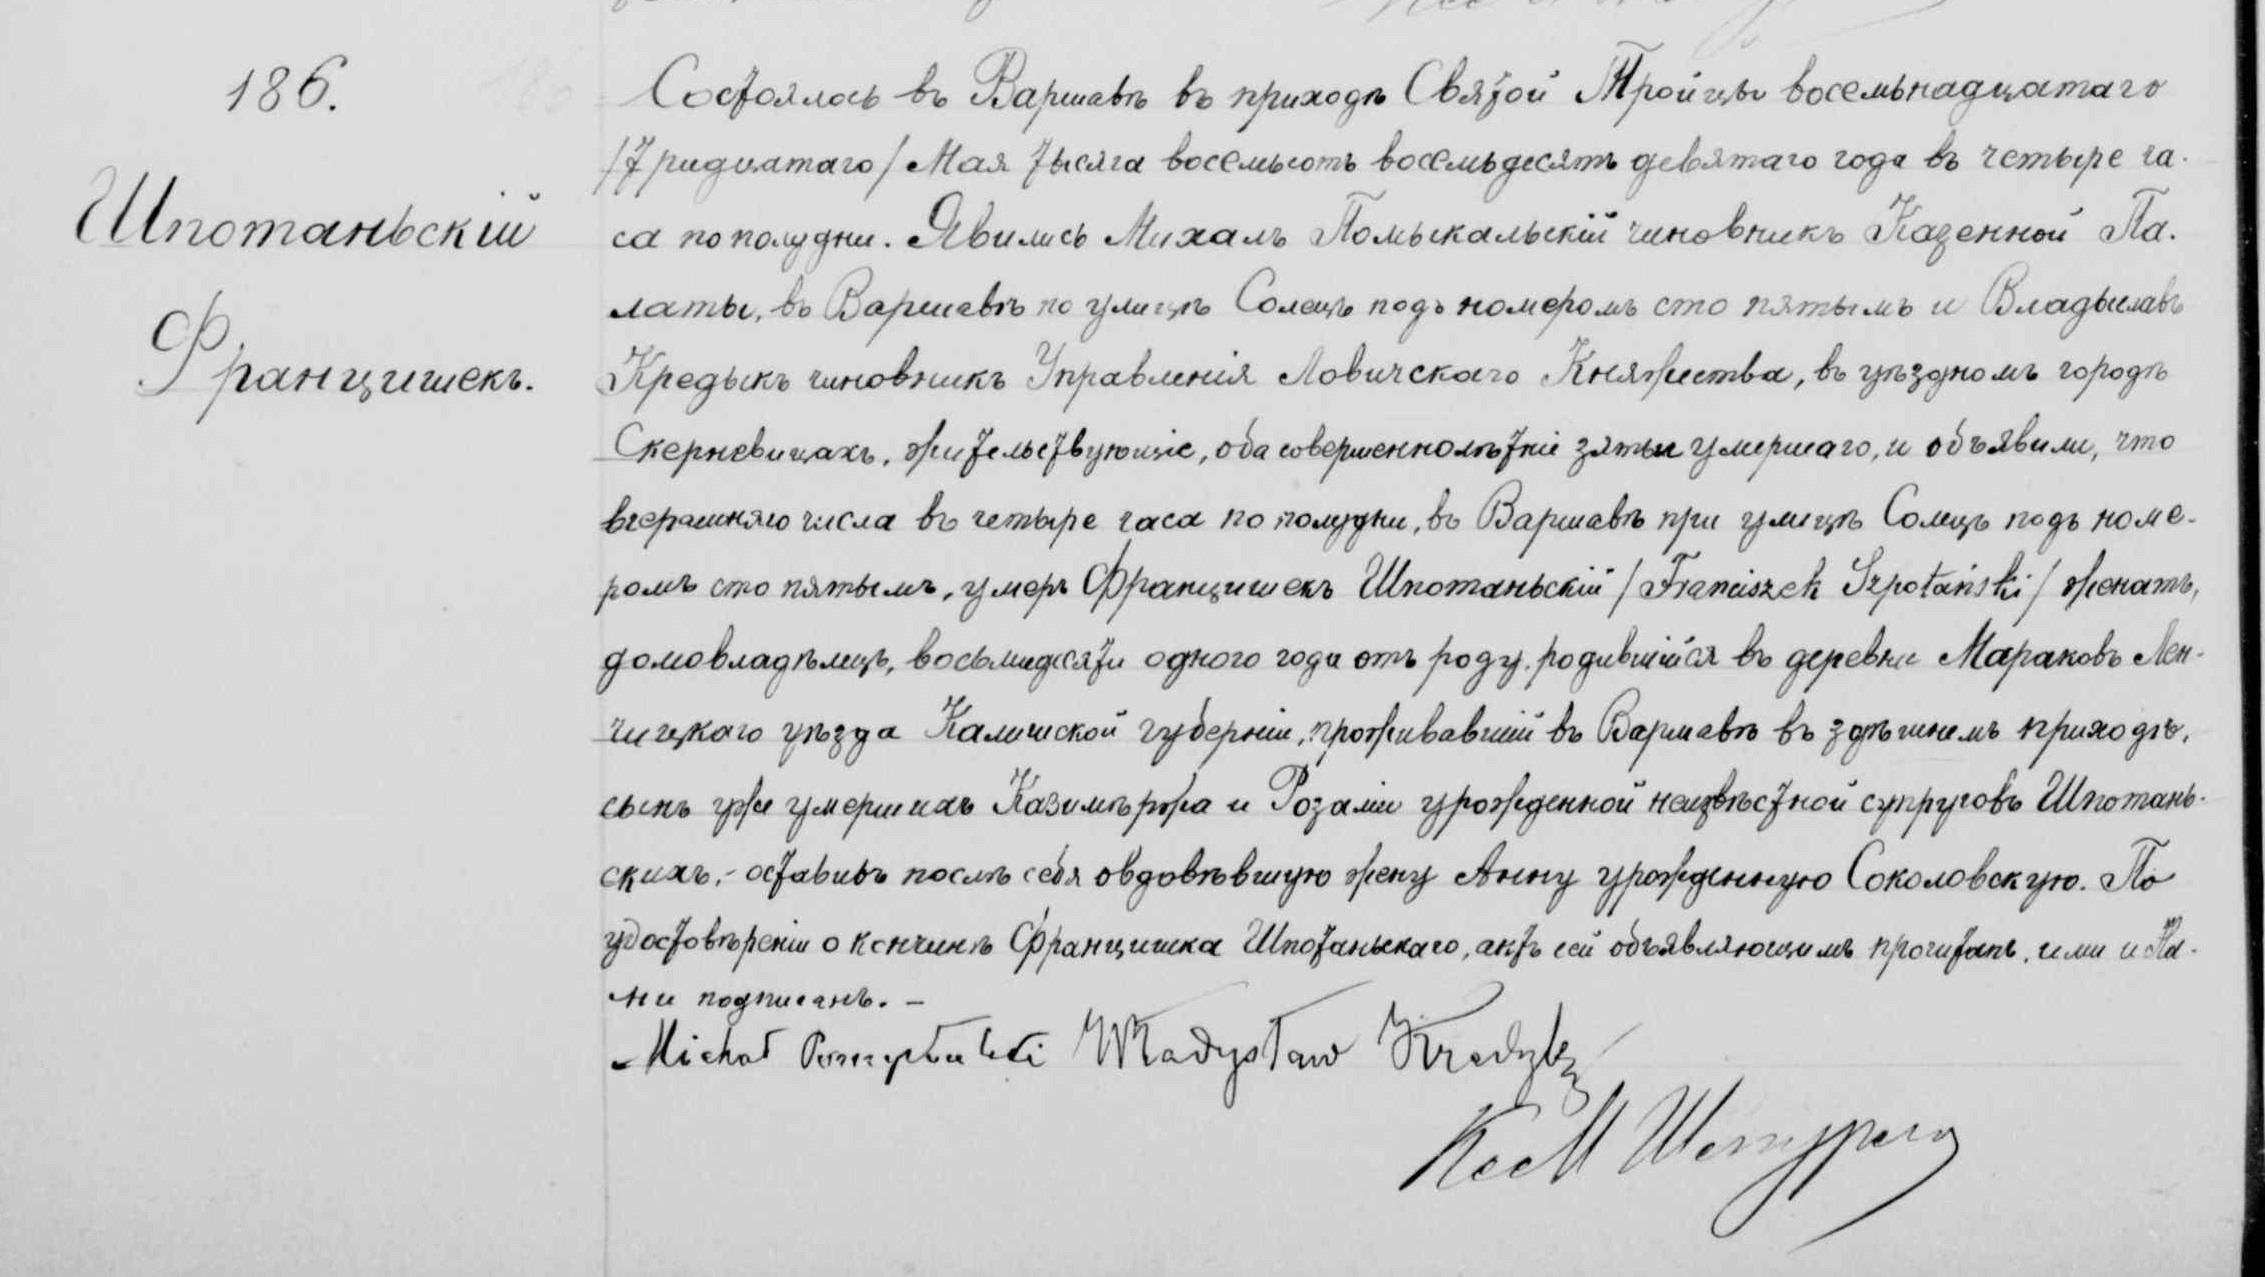 186.
Шпотаньскій
Францишекъ.
Состоялось въ Варшавѣ въ приходѣ Святой Тройцы восемьнадцатаго
/Тридцатаго/ Мая тысяча восемьсотъ восемьдесятъ девятаго года въ четыре ча-
са пополудни. Явились Михалъ Помыкальскій чиновникъ Казенной Па-
латы, въ Варшавѣ по улицѣ Солецъ подъ номеромъ сто пятымъ и Владыславъ
Кредыкъ чиновникъ Управленія Ловичскаго Княжества, въ уѣздномъ городѣ
Скерневицахъ, жительствующіе, оба совершеннолѣтніе зятьи умершаго, и объявили, что
вчерашняго числа въ четыре часа по полудни, въ Варшавѣ при улицѣ Солецъ подъ номе-
ромъ сто пятымъ, умеръ Францишекъ Шпотаньскій /Franciszek Szpotański/ женатъ,
домовладѣлецъ, восьмидесяти одного года отъ роду, родившійся въ деревни Мараковъ Лен-
чицкаго уѣзда Калишской губерніи, проживавшій въ Варшавѣ въ здѣшнемъ приходѣ,
сынъ уже умершихъ Казимѣржа и Розаліи урожденной неизвѣстной супруговъ Шпотань-
скихъ,- оставивъ послѣ себя овдовѣвшую жену Анну урожденную Соколовскую. По
удостовѣреніи о кончинѣ Францишка Шпотаньскаго, актъ сей объявляющимъ прочитанъ, ими и На-
ми подписанъ. -
Michał Pomykalski Władysław Kredyk
Кс М